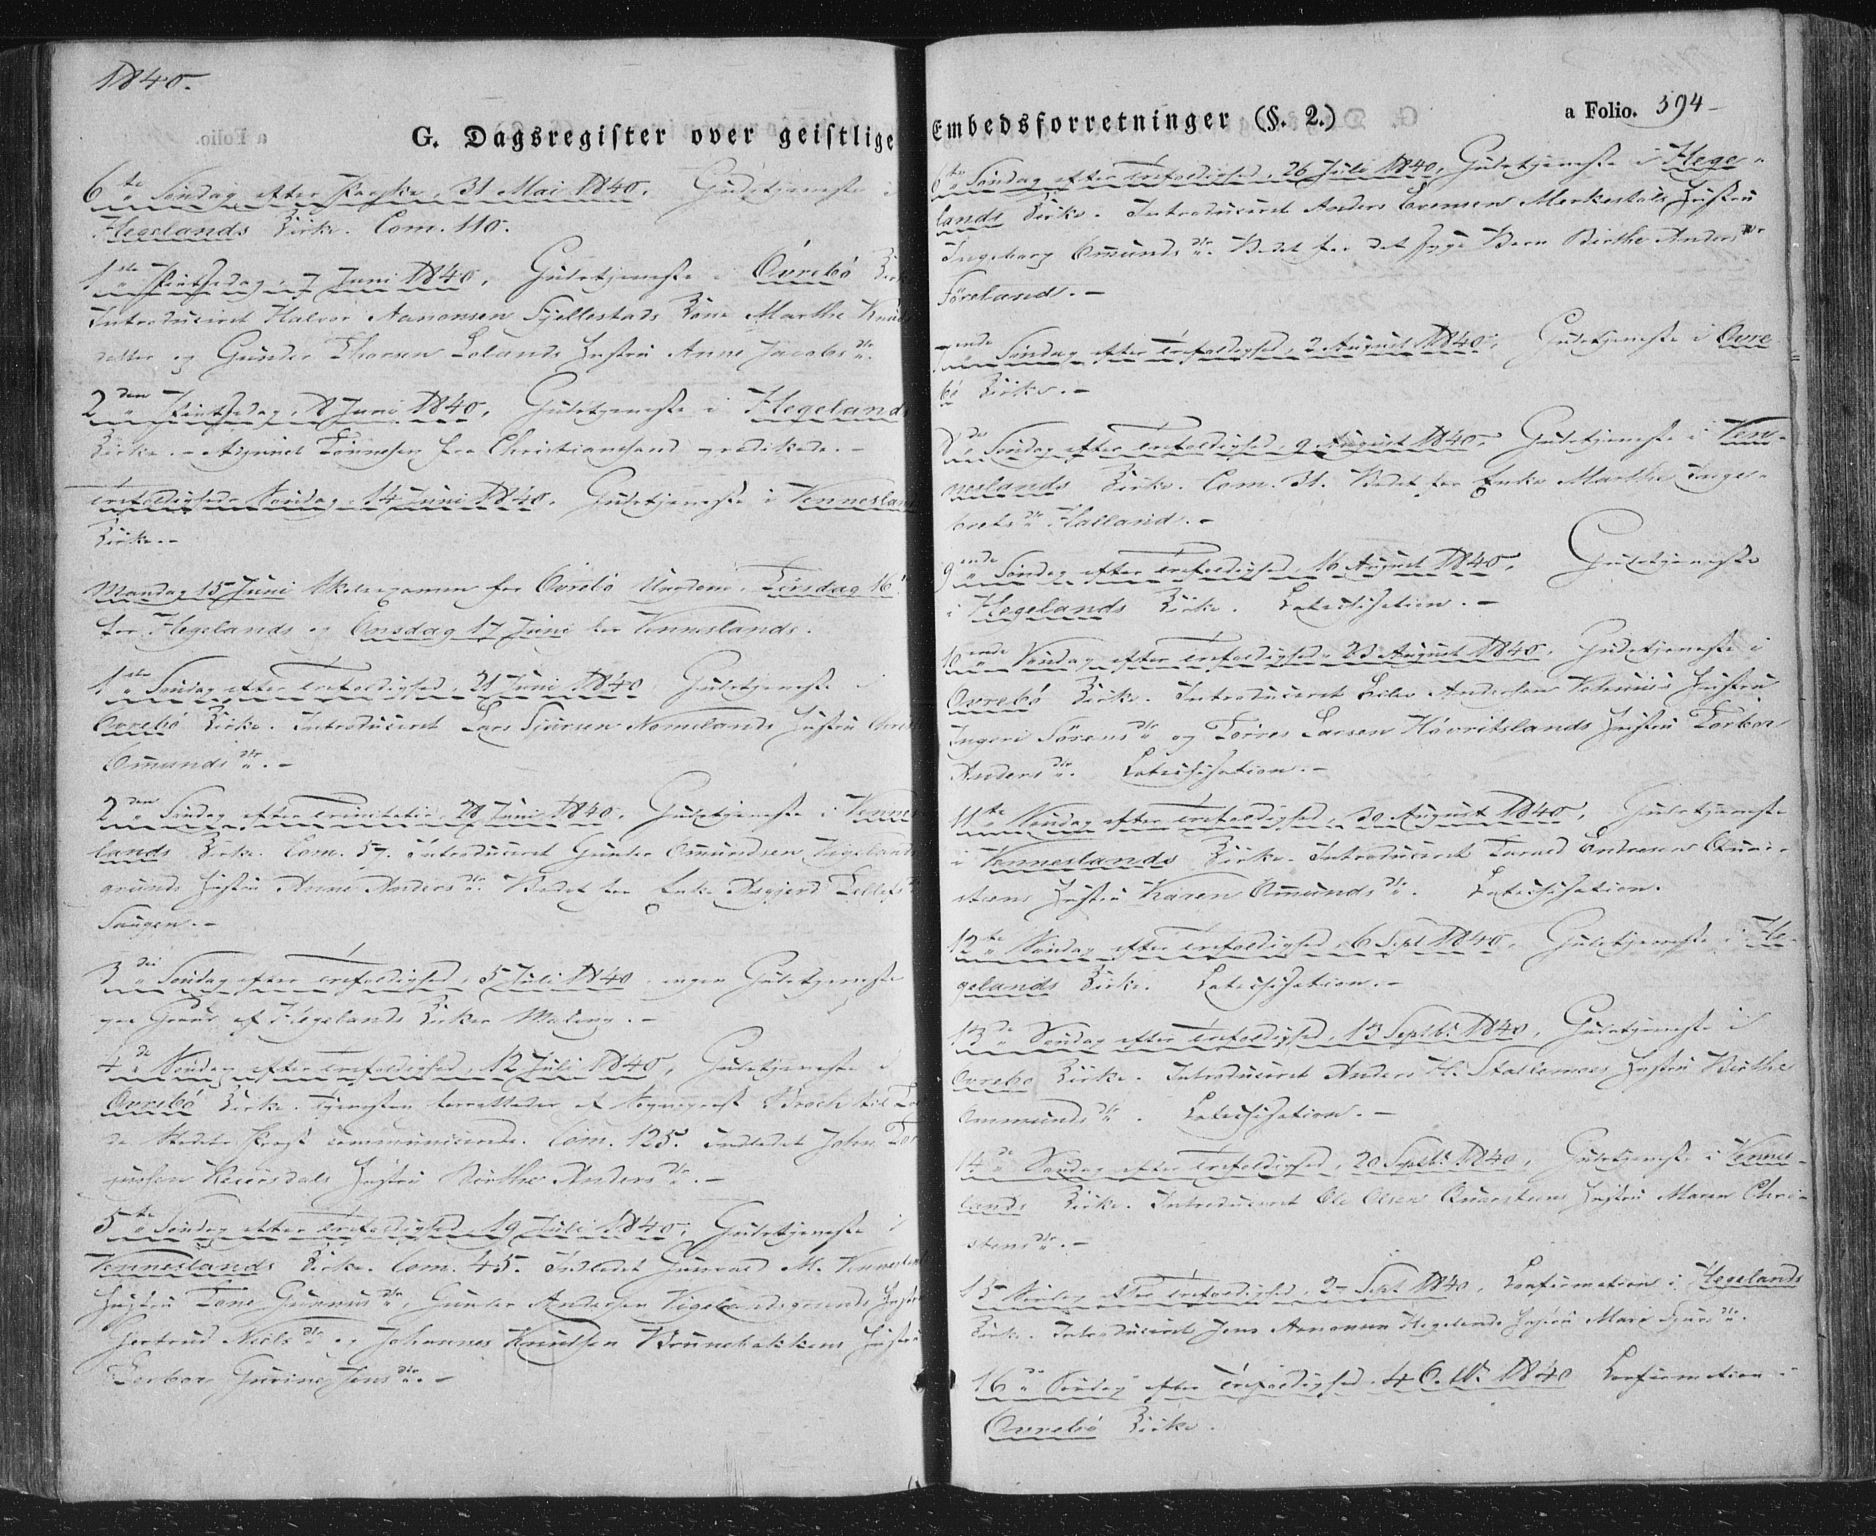 1840.
G. Dagsregister over geistlige
6te Søndag efter Paaske, 31 Mai 1840. Gudstjeneste i
Hegelands Kirke. Com. 110.
1ste Pintsedag, 7 Juni 1840. Gudstjeneste i Øvrebö Kir
Introduceret Halvor Aanonsen Fjellestads Kone Marthe Knuds
datter og Gunder Thorsen Lolands Hustru Anne Jacobsdtr.
2den Pintsedag, 8 Juni 1840. Gudstjeneste i Hegeland
Kirke. - Tönnesen fra Christiansand prædikede. -
Trefoldigheds Søndag, 14 Juni 1840. Gudstjeneste i Vennesland
Kirke. -
Mandag 15 Juni Skoleexamen for Øvrebö Ungdom. Tirsdag 16
for Hegelands og Onsdag 17 Juni for Venneslands.
1ste Søndag efter Trefoldighed, 21 Juni 1840. Gudstjeneste i
Øvrebö Kirke. Introduceret Lars Sjursen Nomelands Hustru
Omundsdtr. -
2den Søndag efter Trinitatis, 28 Juni 1840. Gudstjeneste i Vennes
lands Kirke. Com. 57. Introduceret Gunder Omundsen Vigelands
grunds Hustru Anne Andersdtr. Bedet for Enke Asgjerd Tellefs
Haugen. -
3die Søndag efter Trefoldighed, 5 Juli 1840 ingen Gudstjeneste
paa Grund af Hegelands Kirkes Maling. -
4de Søndag efter Trefoldighed, 12 Juli 1840, Gudstjeneste i
Øvrebö Kirke. Tjenesten forrettedes af Sogneprest Broch til
da Stedets Prest communicerede. Com. 125. Indledet John Tor
juusen Reiersdals Hustru Birthe Andersdtr. -
5te Søndag efter Trefoldighed, 19 Juli 1840, Gudstjeneste i
Venneslands Kirke. Com. 45. Indledet Gunvald M. Vennesland
Hustru Tone Gunnusdtr, Gunder Andersen Vigelandsgrunds Hustr
Gertrud Nielsdtr og Johannes Knudsen Brunebakkens Hustru
Torbor Gurine Jensdtr. -
Embedsforretninger (§. 2.)
a Folio. 394
6te Søndag efter Trefoldighed, 26 Juli 1840, Gudstjeneste i Hege-
lands Kirke. Introduceret Anders Evensen Merkeskals Hustru
Ingeborg Omundsdtr. Bedet for det syge Barn Birthe Andersdtr
Föreland. -
7ende Søndag efter Trefoldighed, 2 August 1840, Gudstjeneste i Øvre
bö Kirke. -
8de Søndag efter Trefoldighed, 9 August 1840. Gudstjeneste i Ven-
neslands Kirke. Com. 31. Bedet for Enke Marthe Inge-
bretsdtr Halland. -
9ende Søndag efter Trefoldighed, 16 August 1840. Gudstjeneste
i Hegelands Kirke. Catechisation. -
10ende Søndag efter Trefoldighed, 23 August 1840. Gudstjeneste i
Øvrebö Kirke. Introduceret Andersen Hustru
Ingeri Sörensdtr og Torres Larsen Hövritslands Hustru Torbor
Andersdtr. Catechisation. -
11te Søndag efter Trefoldighed, 30 August 1840, Gudstjeneste
i Venneslands Kirke. Introduceret Endresen Qvar-
steens Hustru Karen Omundsdtr. Catechisation.
12te Søndag efter Trefoldighed, 6 Sept 1840, Gudstjeneste i He-
gelands Kirke. Catechisation. -
13de Søndag efter Trefoldighed, 13 Septbr 1840, Gudstjeneste i
Øvrebö Kirke. Introduceret Anders H. Stallemoes Hustru Birthe
Ommundsdtr. Catechisation. -
14de Søndag efter Trefoldighed, 20 Septbr 1840, Gudstjeneste i Vennes-
lands Kirke. Introduceret Ole Olsen Qvarsteens Hustru Maren Chri-
stensdtr. -
15 Søndag efter Trefoldighed, 27 Sept 1840, Confirmation i Hegelands
Kirke. Introduceret Jens Aanonsen Hegelands Hustru Mari Sjursdtr.
16de Søndag efter Trefoldighed, 4 Octbr 1840 Confirmation i
Øvrebö Kirke.